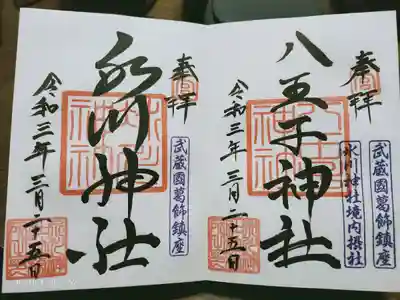 奉拝
八王子神社
令和三年三月二十五日
武蔵國葛飾鎮座
氷川神社境内摂社
奉拝
氷川神社
令和三年三月二十五日
武蔵國葛飾鎮座